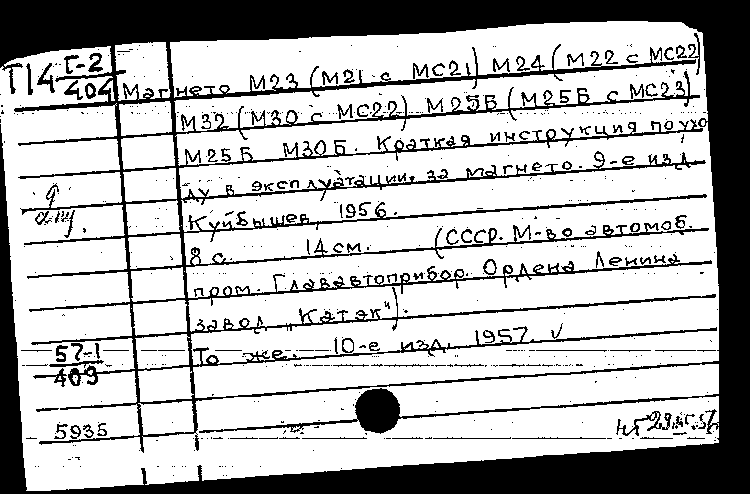 П14 Г-2
404 Магнето М23 (М21 с МС21) М24 (М22 с МС22)
М32 (М30 с МС22) М25Б (М25Б с МС23)
М25Б М30Б. Краткая инструкция по ухо
ду в эксплуатации, за магнето. 9-е изд.
Куйбышев, 1956.
8 с. 14 см. (СССР. М-во автомоб.
пром. Глававтоприбор. Ордена Ленина
завод „Катэк").
То же. 10-е изд. 1957. ✓
9
57-1
409
5935